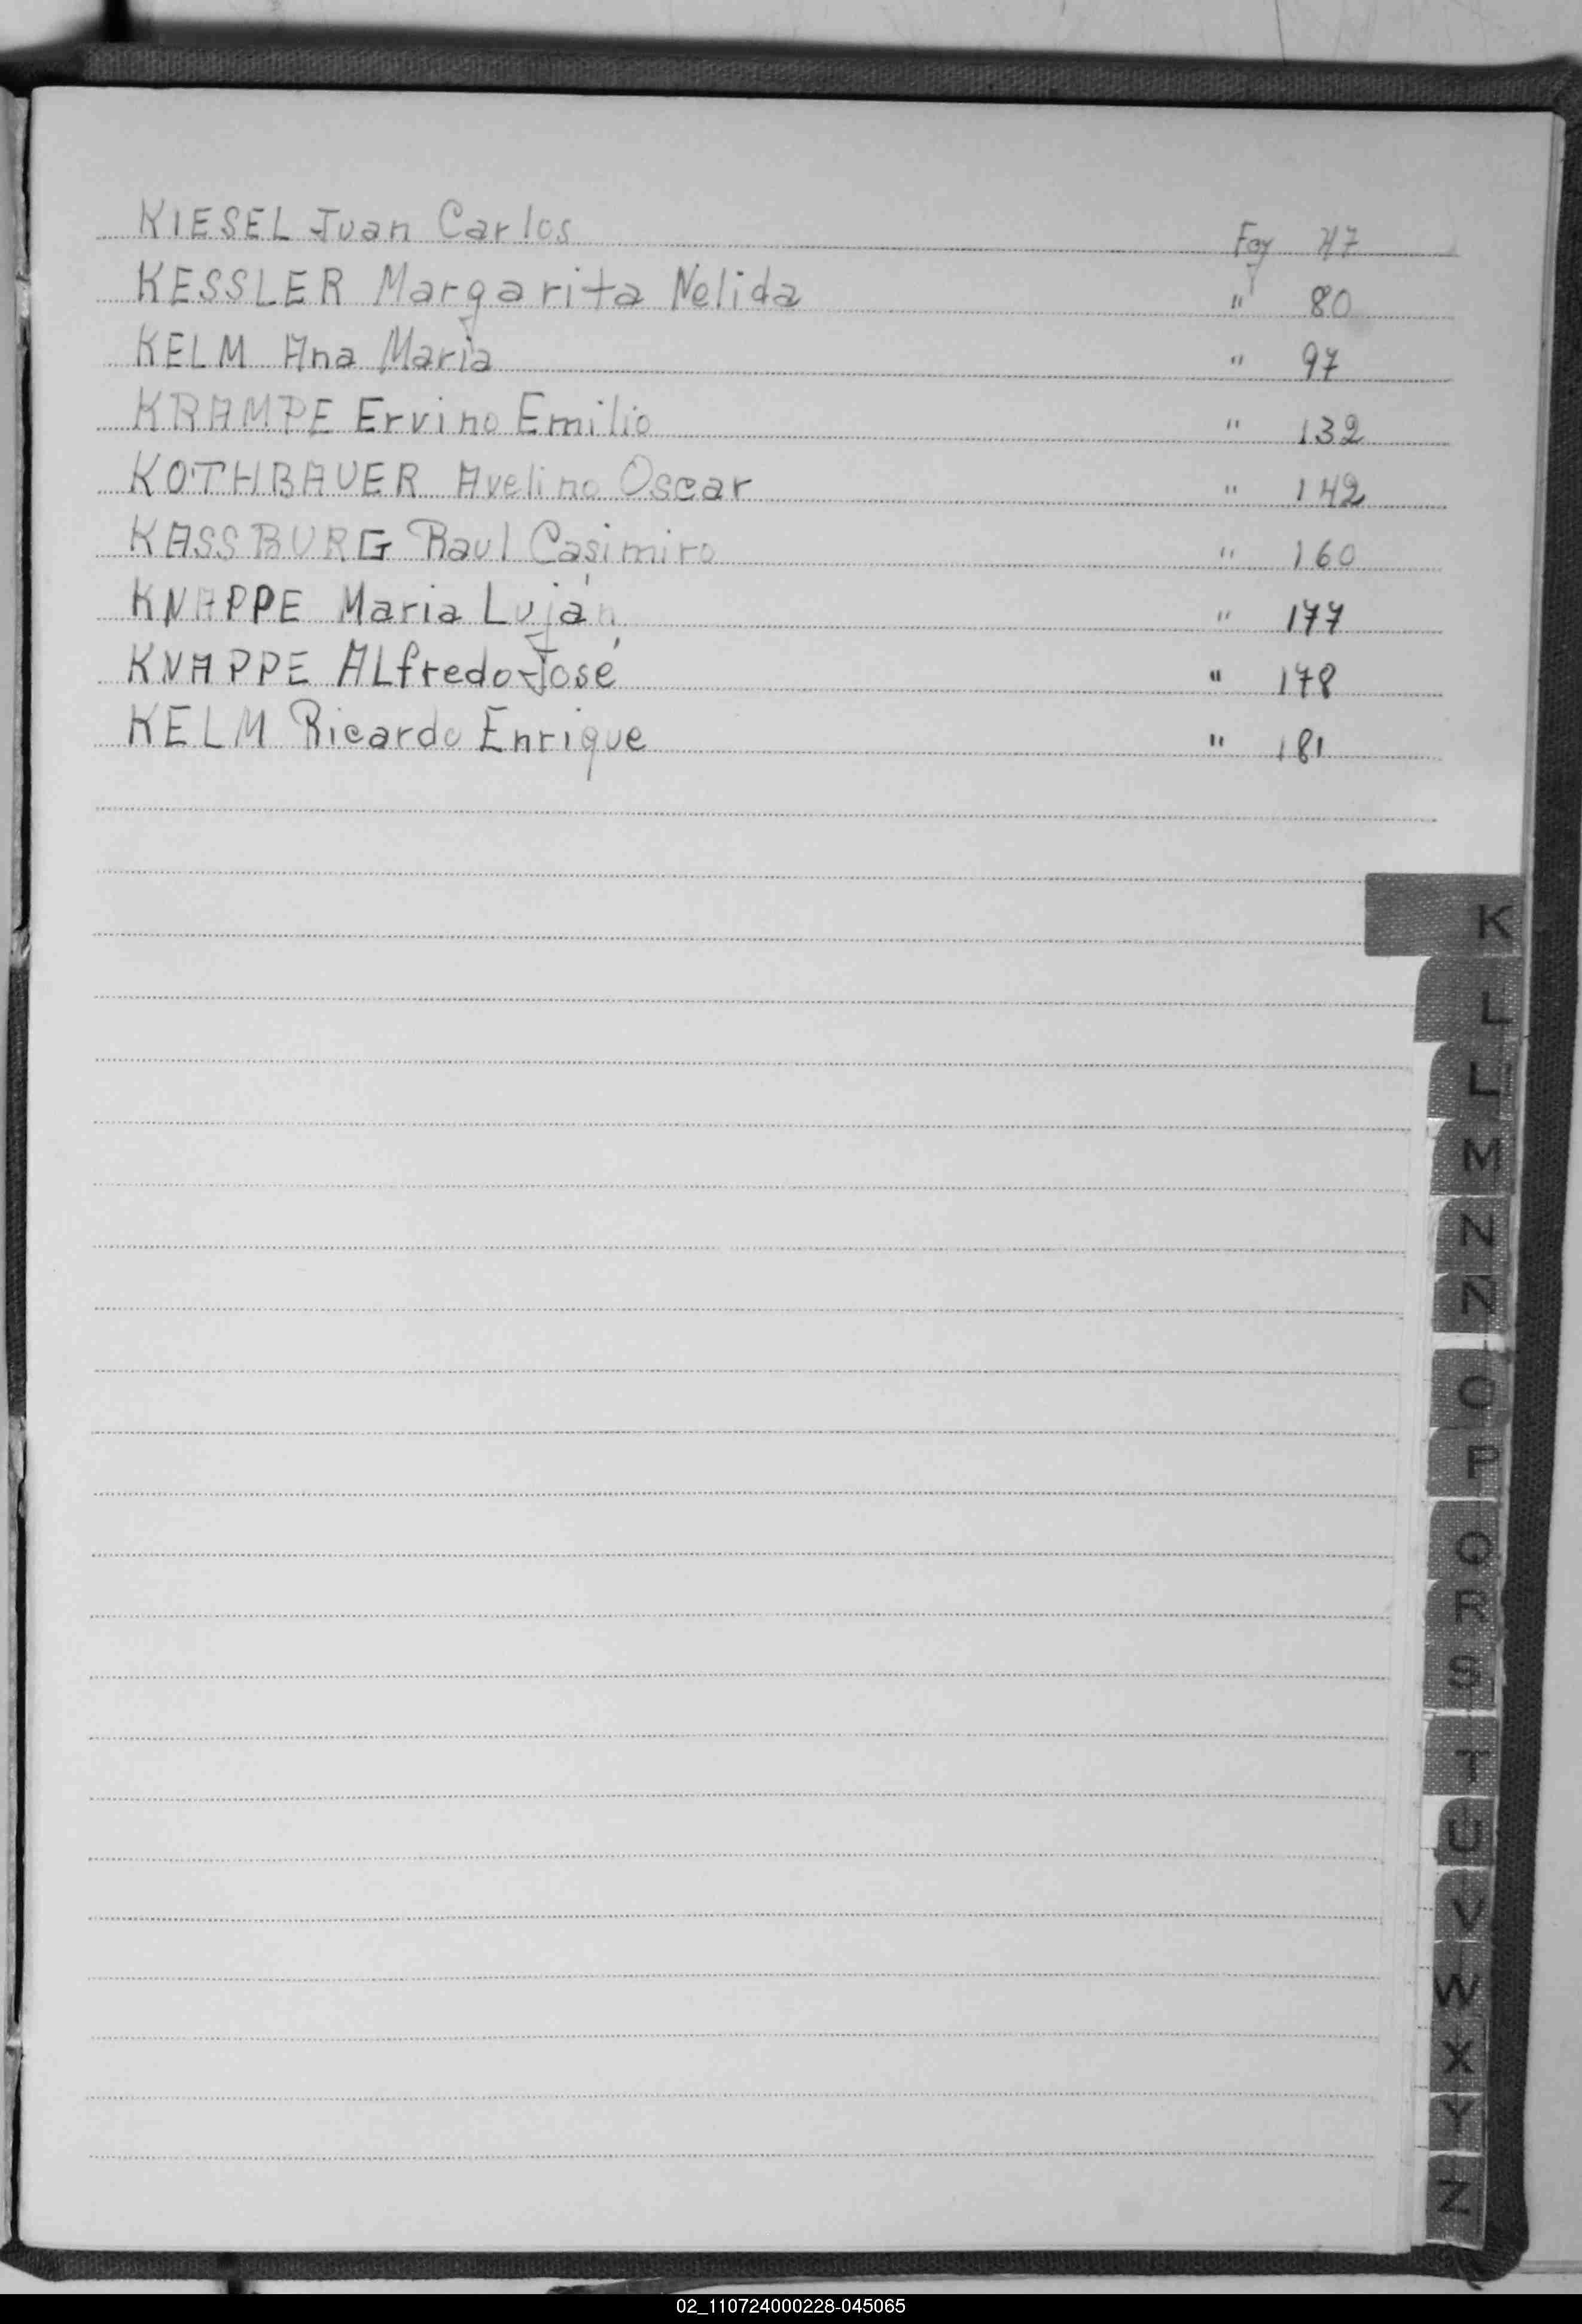 KIESEL Juan Carlos Foj 47
KESSLER Margarita Nelida " 80
KELM Ana Maria " 97
KRAMPE Ervino Emilio " 132
KOTHBAUER Avelino Oscar " 142
KASSBURG Raul Casimiro " 160
KNAPPE Maria Luján " 177
KNAPPE ALfredo José " 178
KELM Ricardo Enrique " 181
K
L
L
M
N
Ñ
O
P
Q
R
S
T
U
V
W
X
Y
Z
02_110724000228-045065